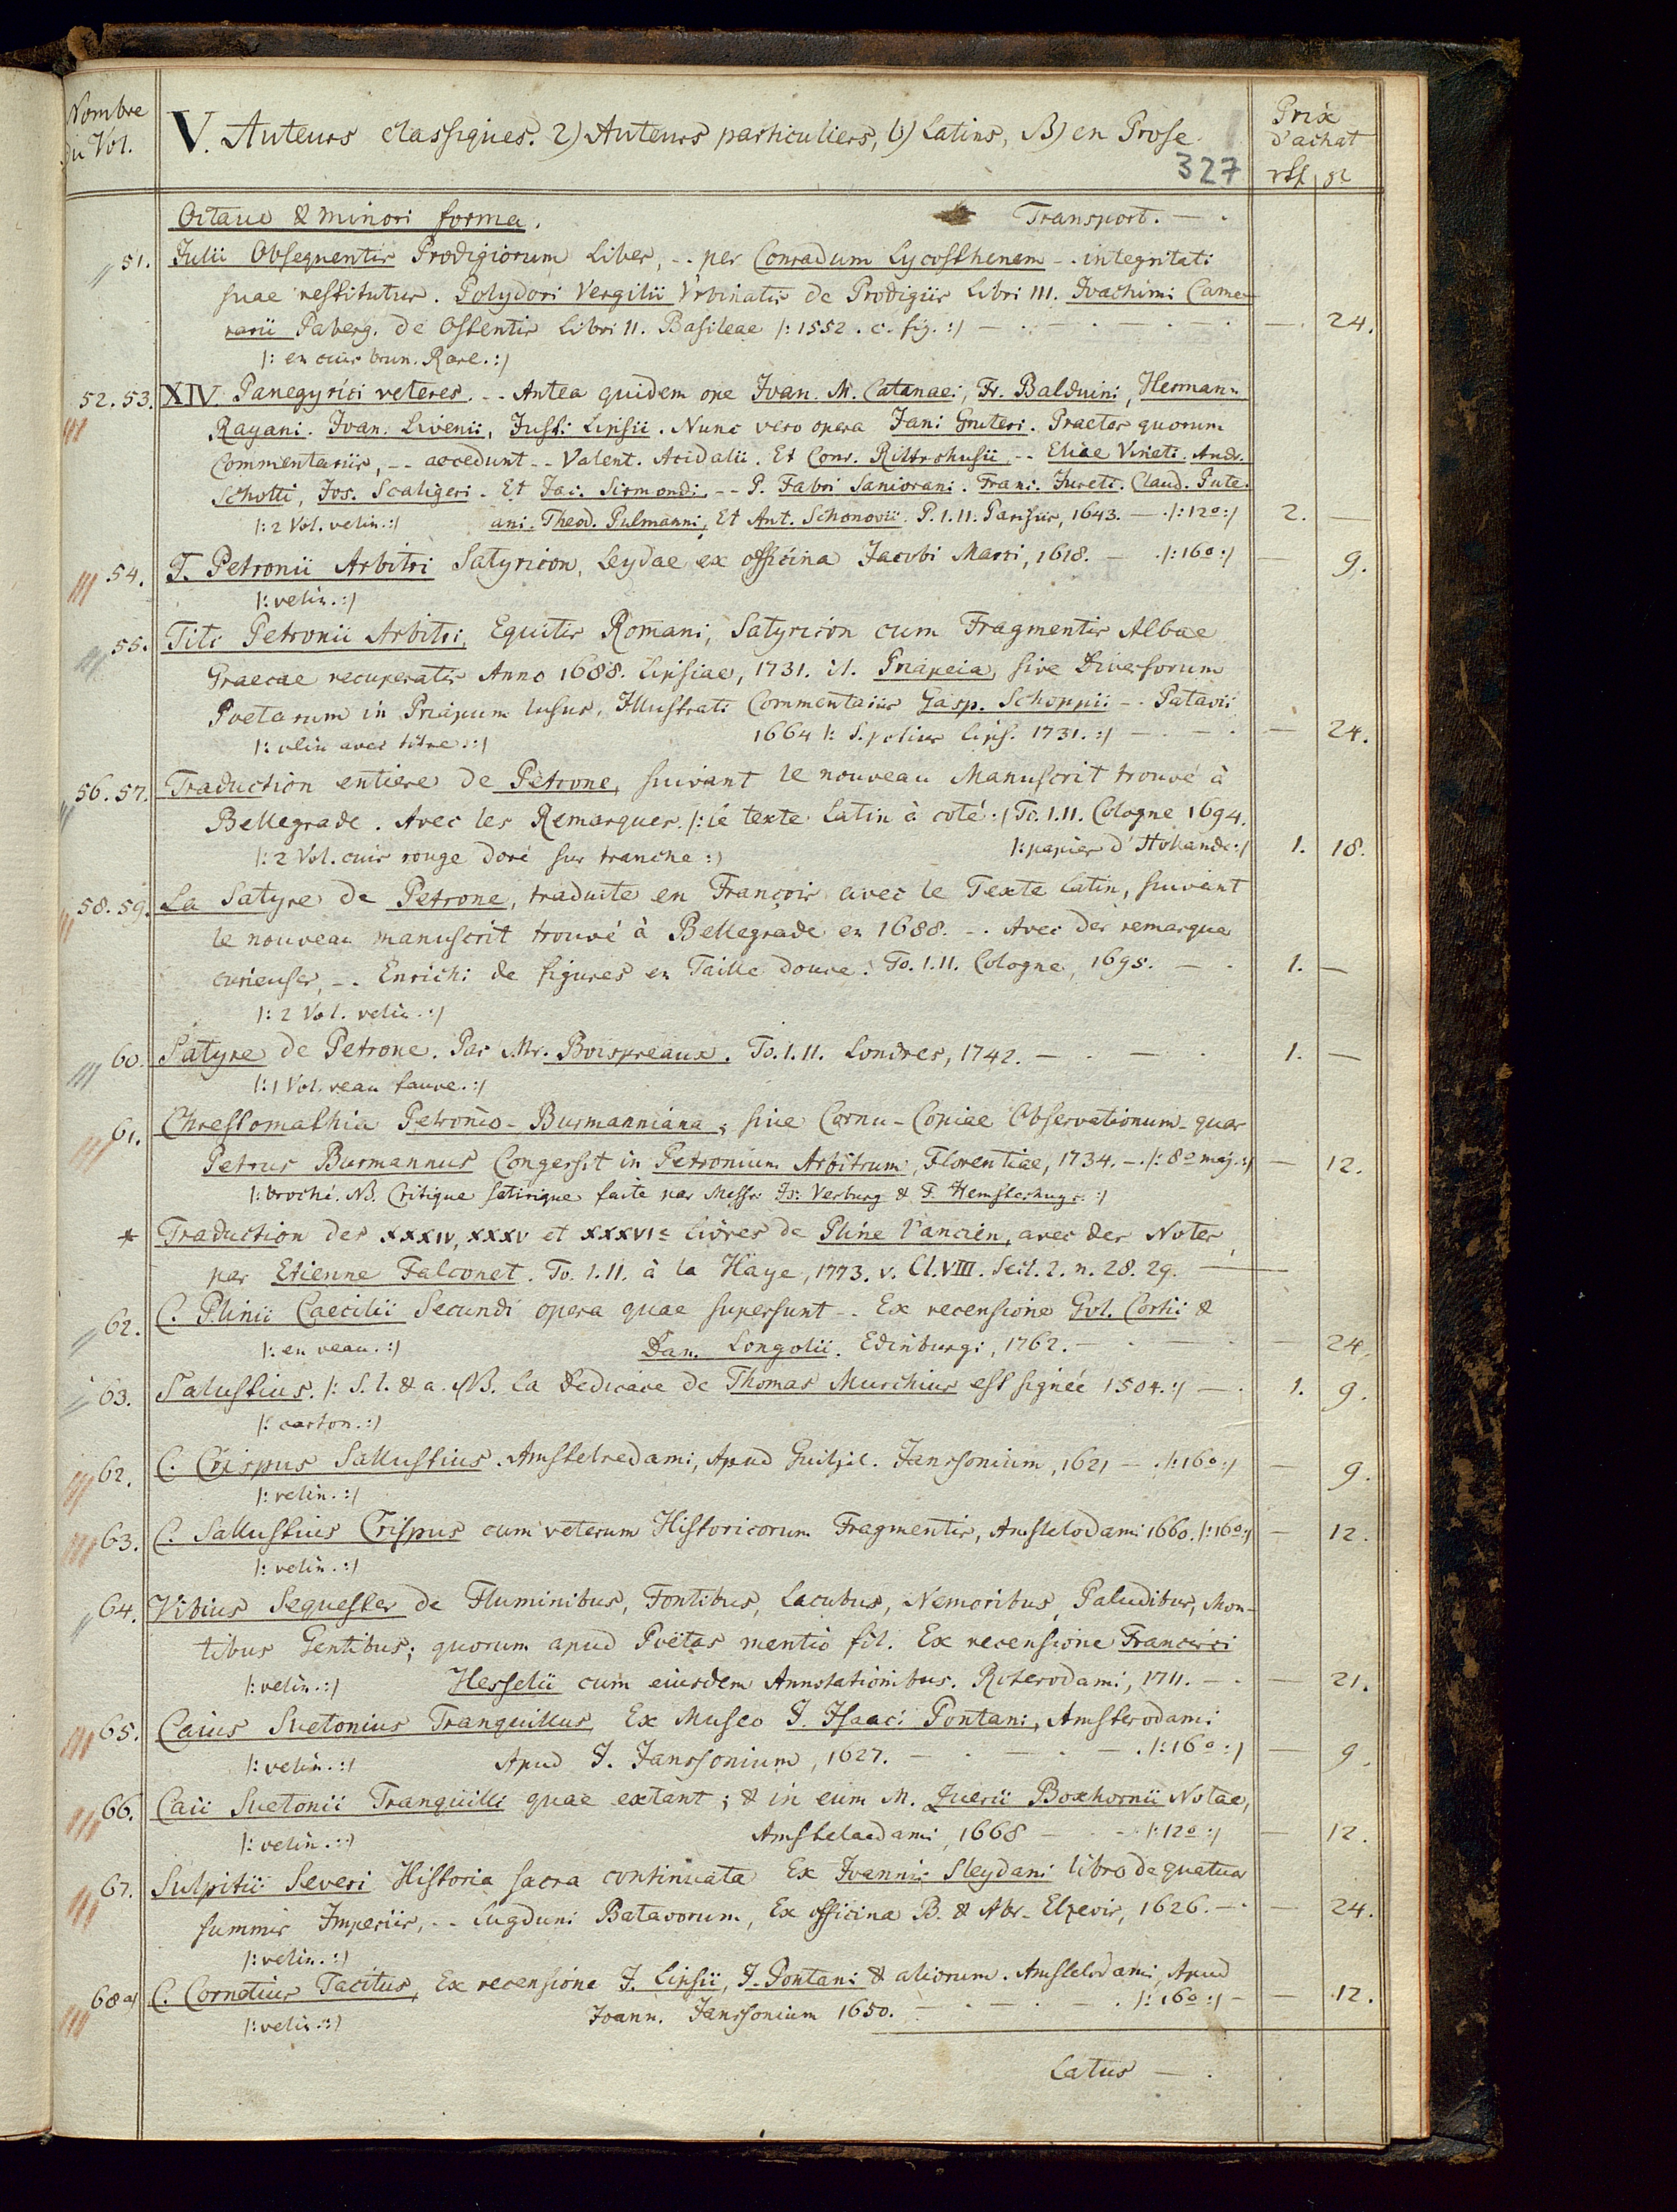 Nombre
du Vol.
V. Auteurs classiques. 2) Auteurs particuliers, b) Latins, B) en Prose.
327
Prix
d'achat
rtl gr
Octavo & minori forma. Transport. — .
51. Julii Obsequentis Prodigiorum Liber, -. per Conradum Lycosthenem -. integritati
suae restitutus. Polydori Vergilii Vrbinatis de Prodigiis Libri III. Joachimi Came-
rarii Paberg. de Ostentis Libri II. Basileae /: 1552. c. fig. :/ — . — . — . — . — . 24.
/: en cuir brun. Rare. :/
52. 53. XIV. Panegyrici veteres. -. Antea quidem ope Joan. M. Catanaei, Fr. Balduini, Hermann.
Rayani. Joan. Livenii, Justi Lipsii. Nunc vero opera Jani Gruteri. Praeter quorum
Commentariis, -. accedunt -. Valent. Acidalii. Et Conr. Rittershusii, -. Eliae Vineti. Andr.
Schotti, Jos. Scaligeri. Et Jac. Sirmondi, -. P. Fabri Saniorani. Franc. Jureti. Claud. Pute-
/: 2 Vol. velin. :/ ani. Theod. Pulmanni, Et Ant. Schonovii. P. I. II. Parisiis, 1643. — . /: 12º :/ 2. —
54. T. Petronii Arbitri Satyricon, Leydae ex officina Jacobi Marci, 1618. — . /: 16º :/ — 9.
/: velin. :/
55. Titi Petronii Arbitri, Equitis Romani, Satyricon cum Fragmentis Albae
Graecae recuperatis Anno 1688. Lipsiae, 1731. it. Priapeia, sive Diversorum
Poetarum in Priapum lusus, Illustrati Commentariis Gasp. Schoppii -. Patavii
/: velin avec titre. :/ 1664 /: S. potius Lips. 1731. :/ — . — . — 24.
56. 57. Traduction entiere de Petrone, suivant le nouveau Manuscrit trouvé à
Bellegrade. Avec les Remarques. /: le texte Latin à coté :/ To. I. II. Cologne 1694.
/: 2 Vol. cuir rouge doré sur tranche :/ /: papier d'Hollande :/ 1. 18.
58. 59. La Satyre de Petrone, traduite en François avec le Texte Latin, suivant
le nouveau manuscrit trouvé à Bellegrade en 1688. -. Avec des remarques
curieuses, -. Enrichi de figures en Taille douce. To. I. II. Cologne, 1695. — . 1. —
/: 2 Vol. velin. :/
60. Satyre de Petrone. Par Mr. Boispreaux. To. I. II. Londres, 1742. — . — . 1. —
/: 1 Vol. veau fauve. :/
61. Chrestomathia Petronio-Burmanniana, sive Cornu-Copiae Observationum quas
Petrus Burmannus Congessit in Petronium Arbitrum, Florentiae, 1734. — . /: 8º maj. :/ — 12.
/: broché. NB. Critique satirique faite par Messrs Is: Verburg & T. Hemsterhuys. :/
* Traduction des XXXIV, XXXV et XXXVIe livres de Pline l'ancien, avec des Notes,
par Etienne Falconet. To. I. II. à la Haye, 1773. v. Cl. VIII. Sect. 2. n. 28. 29. —
62. C. Plinii Caecilii Secundi opera quae supersunt -. Ex recensione Gol. Cortii &
/: en veau. :/ Dan. Longolii. Edinburgi, 1762. — . — . — 24.
63. Salustius. /: S. l. & a. NB. La Dedicace de Thomas Murchius est signée 1504. :/ — . 1. 9.
/: carton. :/
62. C. Crispus Sallustius. Amstelredami, Apud Guiljel. Janssonium, 1621 — . /: 16º :/ — 9.
/: velin. :/
63. C. Sallustius Crispus cum veterum Historicorum Fragmentis, Amstelodami 1660. /: 16º :/ — 12.
/: velin. :/
64. Vibius Sequester de Fluminibus, Fontibus, Lacubus, Nemoribus, Paludibus, Mon-
tibus Gentibus; quorum apud Poëtas mentio fit. Ex recensione Francisci
/: velin. :/ Hesselii cum eiusdem Annotationibus. Roterodami, 1711. — . — 21.
65. Caius Suetonius Tranquillus, Ex Museo J. Isaaci Pontani, Amsterodami
/: velin. :/ Apud J. Janssonium, 1627. — . — . — . /: 16º :/ — 9.
66. Caii Suetonii Tranquilli quae extant; & in eum M. Zuerii Boxhornii Notae,
/: velin. :/ Amstelaedami, 1668 — . — . /: 12º :/ — 12.
67. Sulpitii Severi Historia sacra continuata Ex Joannis Sleydani libro de quatuor
summis Imperiis, -. Lugduni Batavorum, Ex officina B. & Abr. Elzevir, 1626. — . — 24.
/: velin. :/
68 a) C. Cornelius Tacitus, Ex recensione J. Lipsii, J. Pontani & aliorum. Amstelodami, Apud
/: velin. :/ Joann. Janssonium 1650. — . — . — . /: 16º :/ — 12.
Latus — .